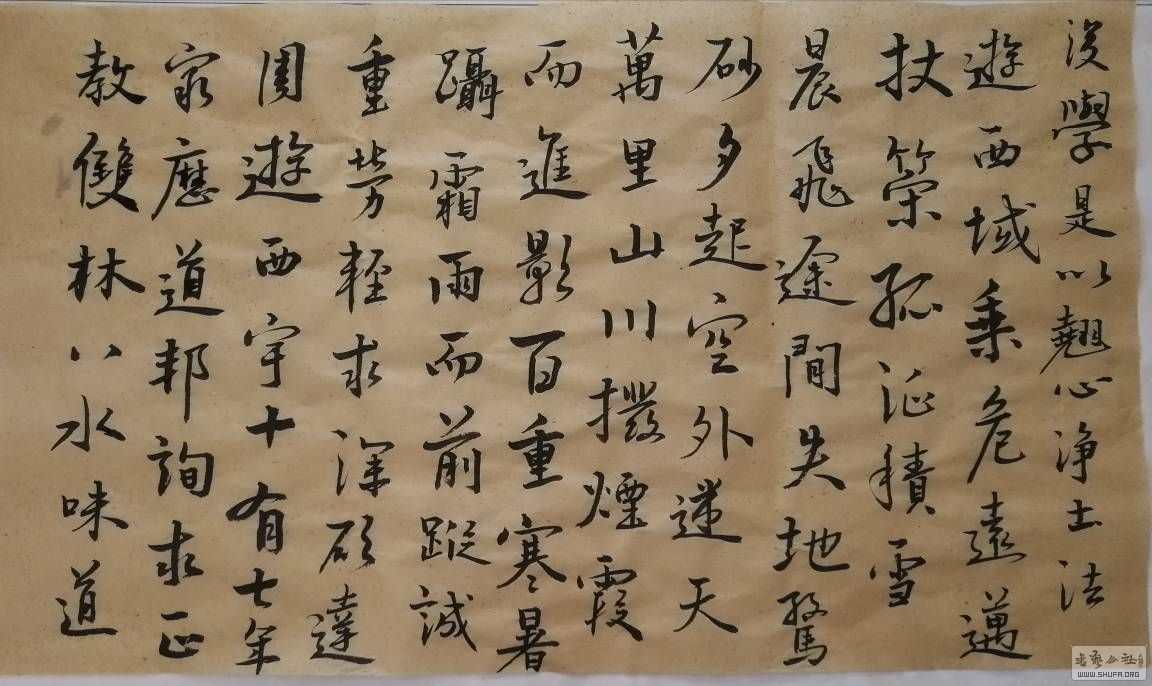 後學是以翹心净土法
遊西域乘危遠邁
杖策孤征積雪
晨飛途間失地驚
砂夕起空外迷天
萬里山川撥煙霞
而進影百重寒暑
躡霜雨而前蹤誠
重勞輕求深願達
周遊西宇十有七年
窮歷道邦詢求正
教雙林八水味道
書藝公社
WWW.SHUFA.ORG